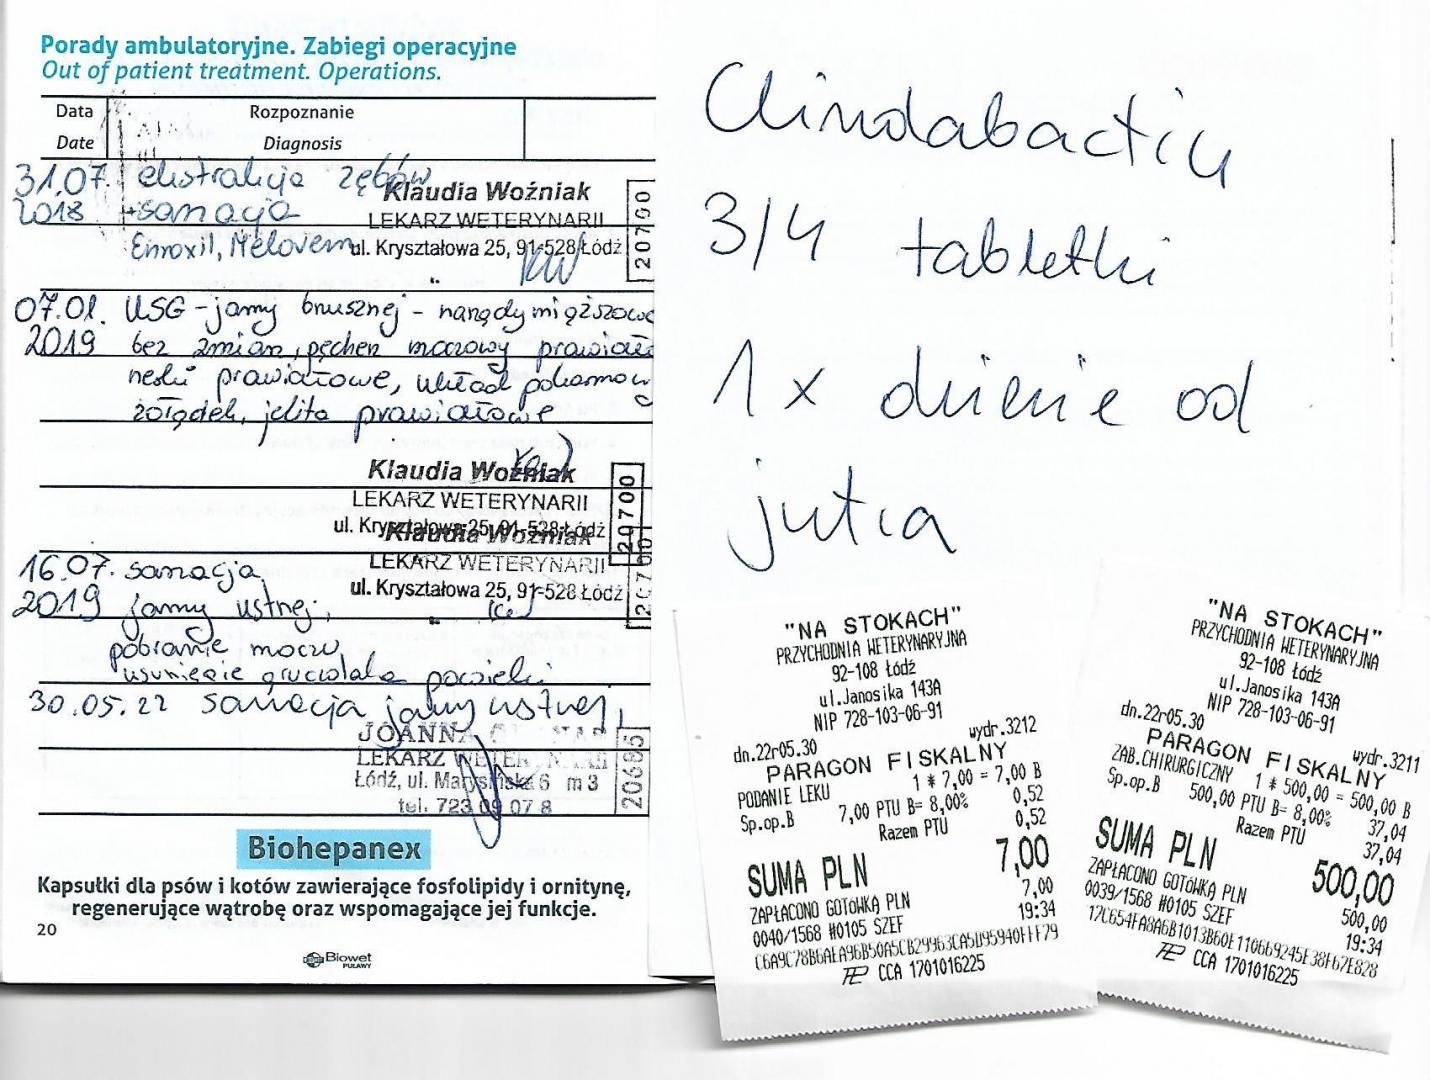 Porady ambulatoryjne. Zabiegi operacyjne
Out of patient treatment. Operations.
Data Rozpoznanie
Date Diagnosis
31.07. ekstrakcja zębów
2018 +sanacja
Enroxil, Melovem
Klaudia Woźniak
LEKARZ WETERYNARII
ul. Kryształowa 25, 91-528 Łódź
20700
07.01. USG - jamy brusznej - narządy miąższowe
2019 bez zmian, pęcherz moczowy prawidło
nerki prawidłowe, układ pokarmow
żołądek, jelita prawidłowe
Klaudia Woźniak
LEKARZ WETERYNARII
ul. Kryształowa 25, 91-528 Łódź
20700
Klaudia Woźniak
LEKARZ WETERYNARII
ul. Kryształowa 25, 91-528 Łódź
20700
16.07. sanacja
2019 jamy ustnej,
pobranie moczu,
usunięcie gruczolaka powieki
30.05.22 sanacja jamy ustnej,
JOANNA
LEKARZ
Łódź, ul. Marysińska 6 m 3
tel. 723 09 07 8
20685
Biohepanex
Kapsułki dla psów i kotów zawierające fosfolipidy i ornitynę,
regenerujące wątrobę oraz wspomagające jej funkcje.
20
Biowet
PUŁAWY
Clindabactin
3/4 tabletki
1 x dziennie od
jutra
"NA STOKACH"
PRZYCHODNIA WETERYNARYJNA
92-108 Łódź
ul.Janosika 143A
NIP 728-103-06-91
dn.22r05.30 wydr.3212
PARAGON FISKALNY
PODANIE LEKU 1 * 7,00 = 7,00 B
Sp.op.B 7,00 PTU B= 8,00% 0,52
Razem PTU 0,52
SUMA PLN 7,00
ZAPŁACONO GOTÓWKĄ PLN 7,00
0040/1568 #0105 SZEF 19:34
CCA 1701016225
"NA STOKACH"
PRZYCHODNIA WETERYNARYJNA
92-108 Łódź
ul.Janosika 143A
NIP 728-103-06-91
dn.22r05.30 wydr.3211
PARAGON FISKALNY
ZAB.CHIRURGICZNY 1 * 500,00 = 500,00 B
Sp.op.B 500,00 PTU B= 8,00% 37,04
Razem PTU 37,04
SUMA PLN 500,00
ZAPŁACONO GOTÓWKĄ PLN 500,00
0039/1568 #0105 SZEF 19:34
CCA 1701016225